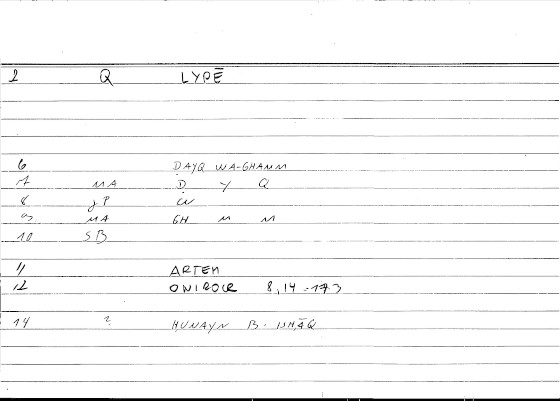 2 Q LYPĒ
6 ḌAYQ WA-GHAMM
7 MA Ḍ Y Q
8 JP W
9 MA GH M M
10 SB
11 ARTEM
12 ONIROCR 8,14 -173
14 ? ḤUNAYN B. ISḤĀQ